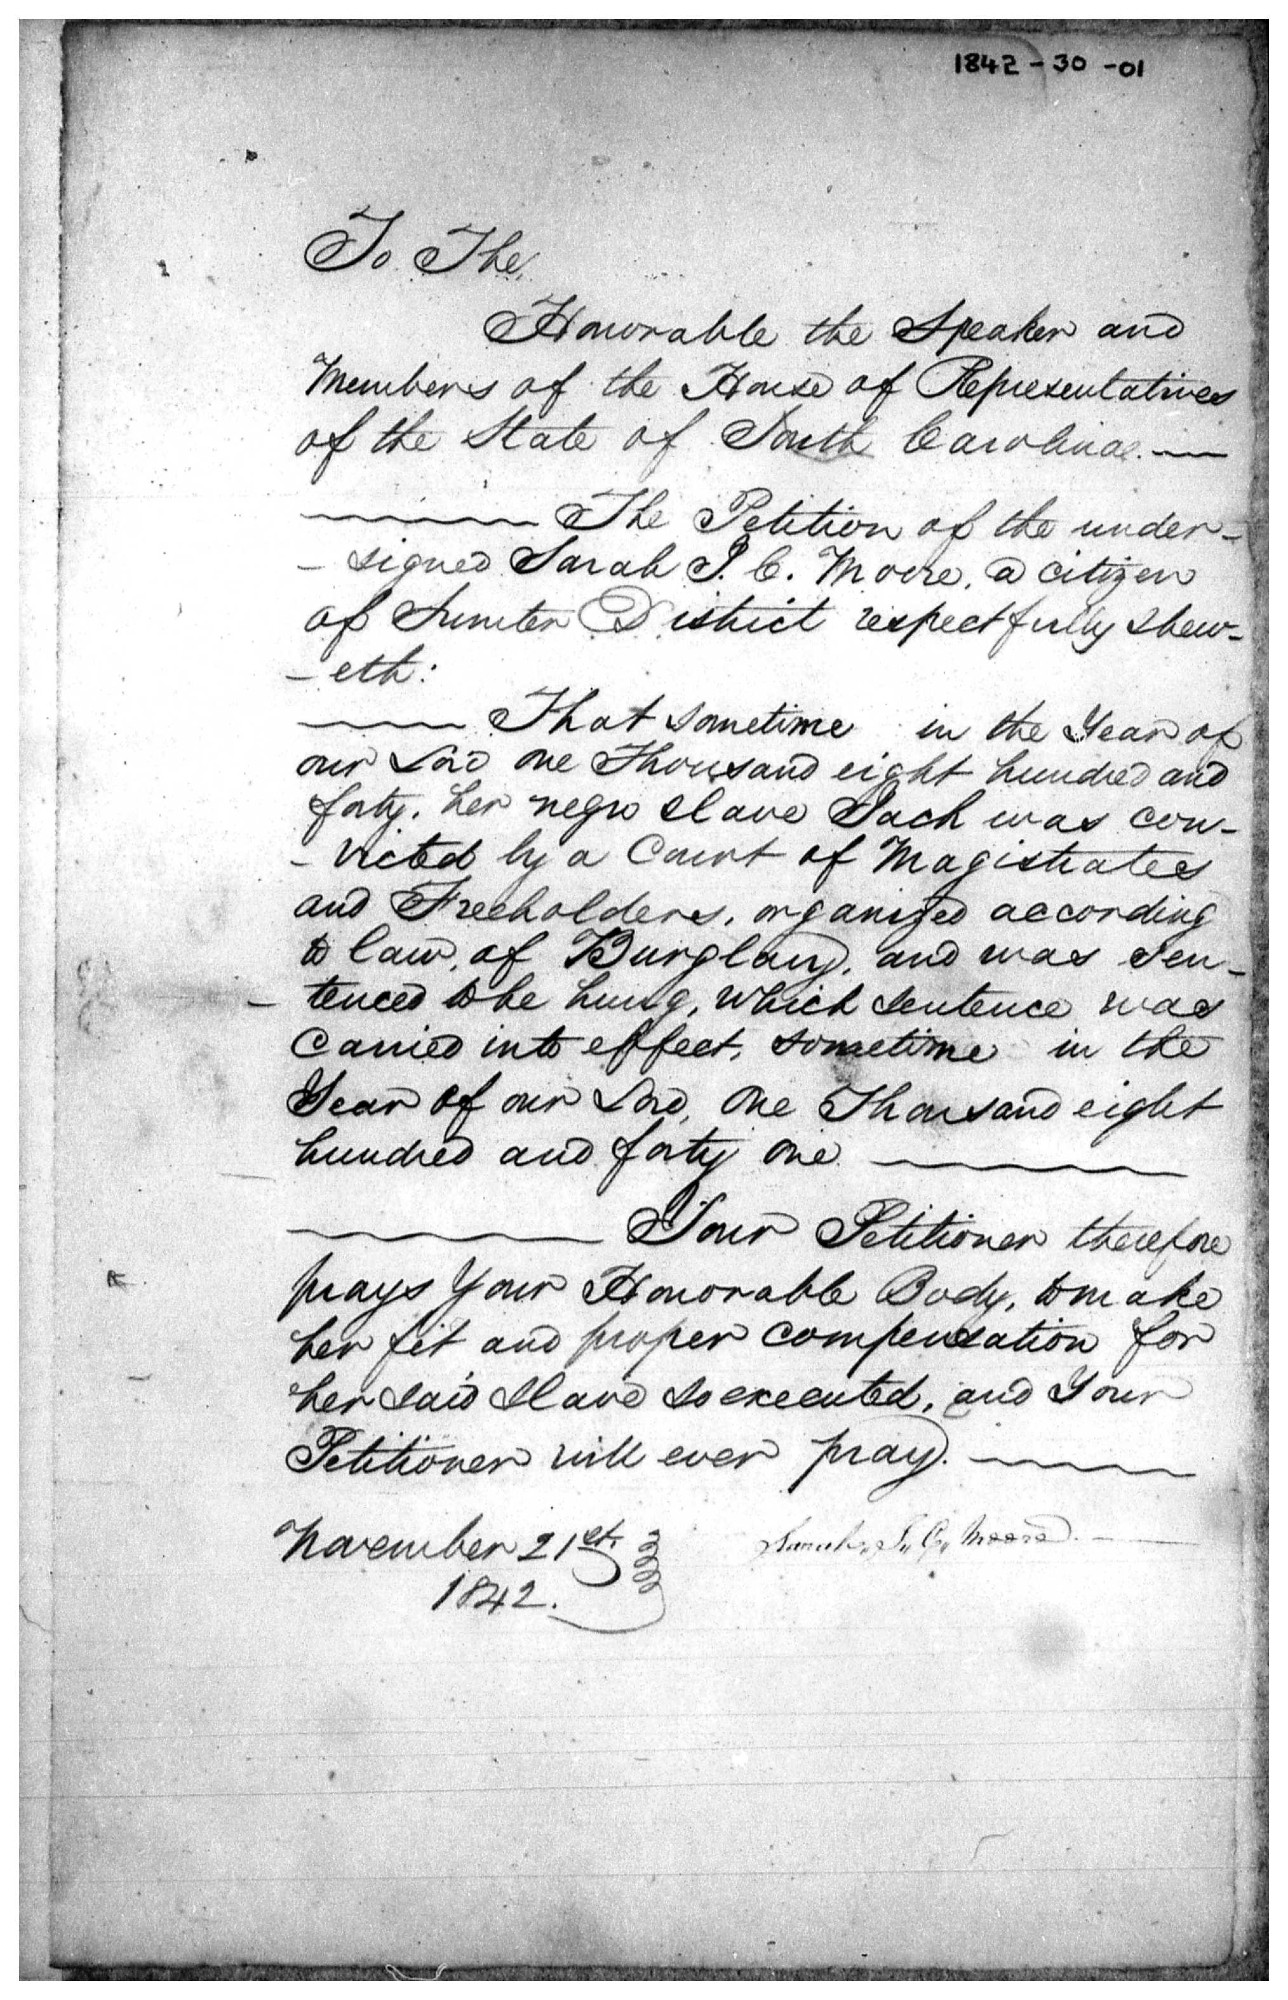 1842-30-01
To The
Honorable the Speaker and
Members of the House of Representatives
of the State of South Carolina.
The Petition of the under-
- signed Sarah J. C. Moore, a citizen
of Sumter District respectfully shew-
- eth:
That sometime in the Year of
our Lord one Thousand eight hundred and
forty, her negro slave Jack was con-
- victed by a Court of Magistrates
and Freeholders, organized according
to law, of Burglary, and was sen-
- tenced to be hung, which sentence was
Carried into effect, sometime in the
Year of our Lord, One Thousand eight
hundred and forty one
Your Petitioner therefore
prays Your Honorable Body, to make
her fit and proper compensation for
her said slave so executed, and Your
Petitioner will ever pray.
November 21st,
Sarah J. C. Moore.
1842.